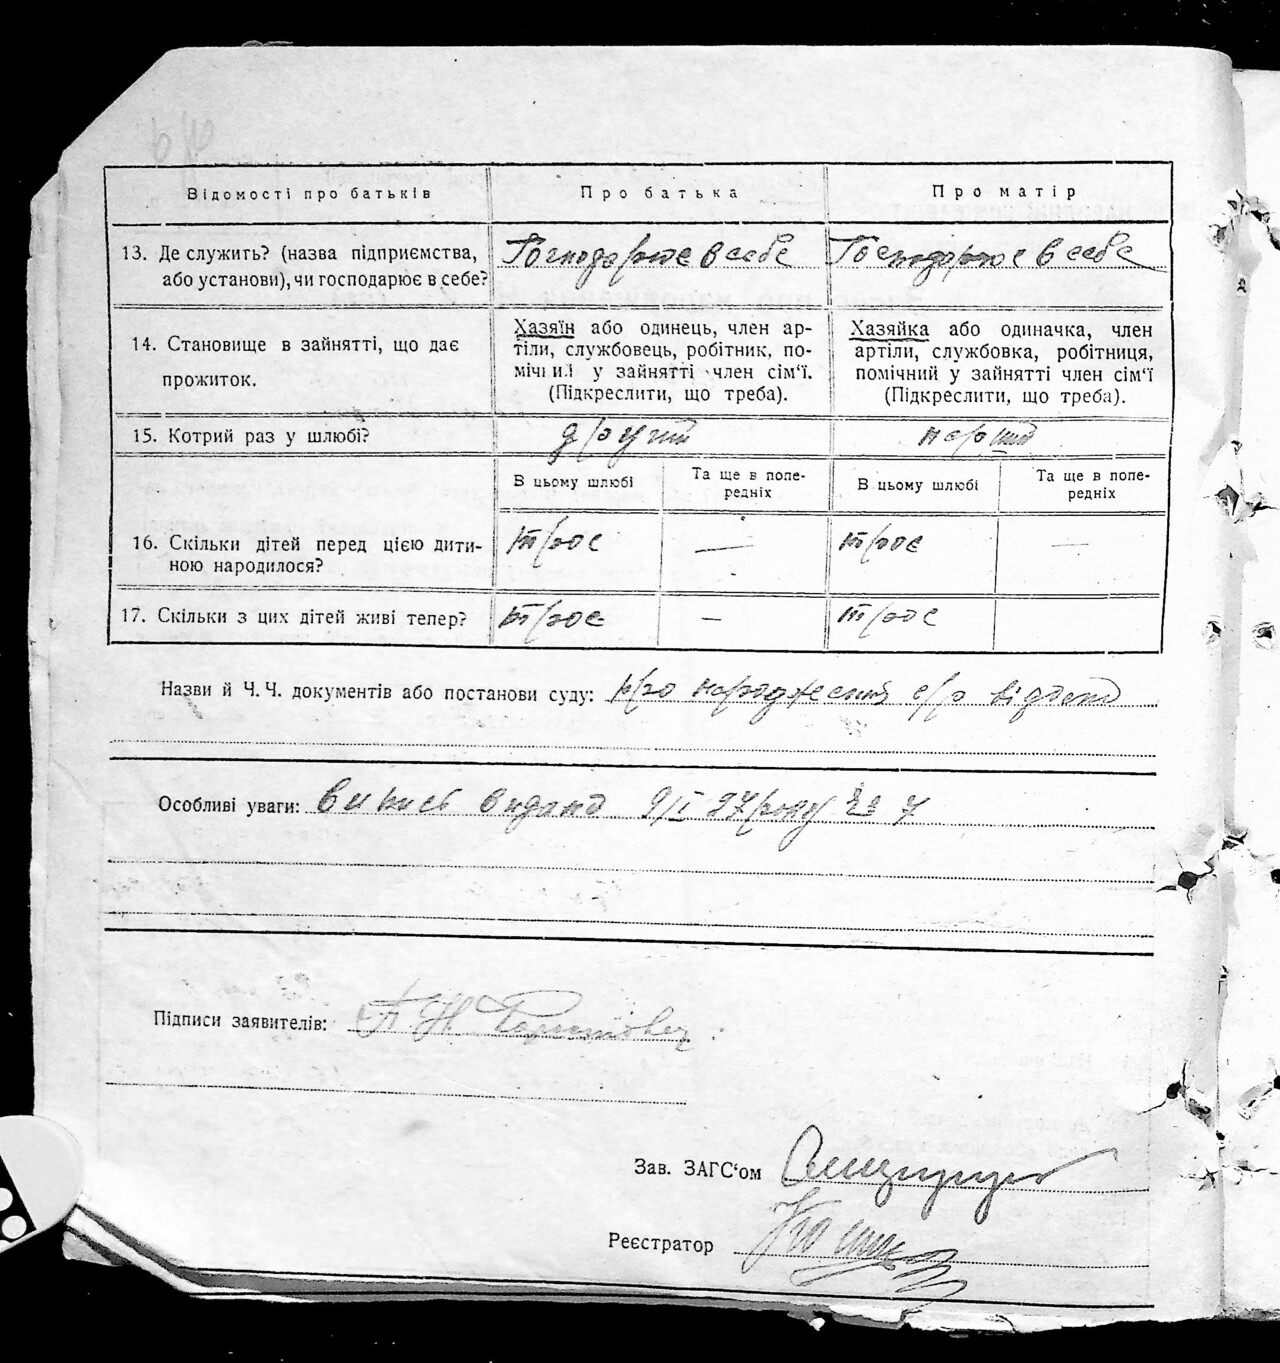 Відомості про батьків Про батька Про матір
13. Де служить? (назва підприємства, або установи), чи господарює в себе? Господарює в себе Господарює в себе
14. Становище в зайнятті, що дає прожиток.
Хазяїн або одинець, член ар-
тіли, службовець, робітник, по-
мічний у зайнятті член сім'ї.
(Підкреслити, що треба).
Хазяйка або одиначка, член
артіли, службовка, робітниця,
помічний у зайнятті член сім'ї
(Підкреслити, що треба).
15. Котрий раз у шлюбі? другий перший
В цьому шлюбі Та ще в попе-
редніх В цьому шлюбі Та ще в попе-
редніх
16. Скільки дітей перед цією дити-
ною народилося? троє — троє —
17. Скільки з цих дітей живі тепер? троє — троє
Назви й Ч.Ч. документів або постанови суду: про народження
Особливі уваги: Випис видано 9/II 27 року № 7
Підписи заявителів: П Н
Зав. ЗАГС'ом
Реєстратор